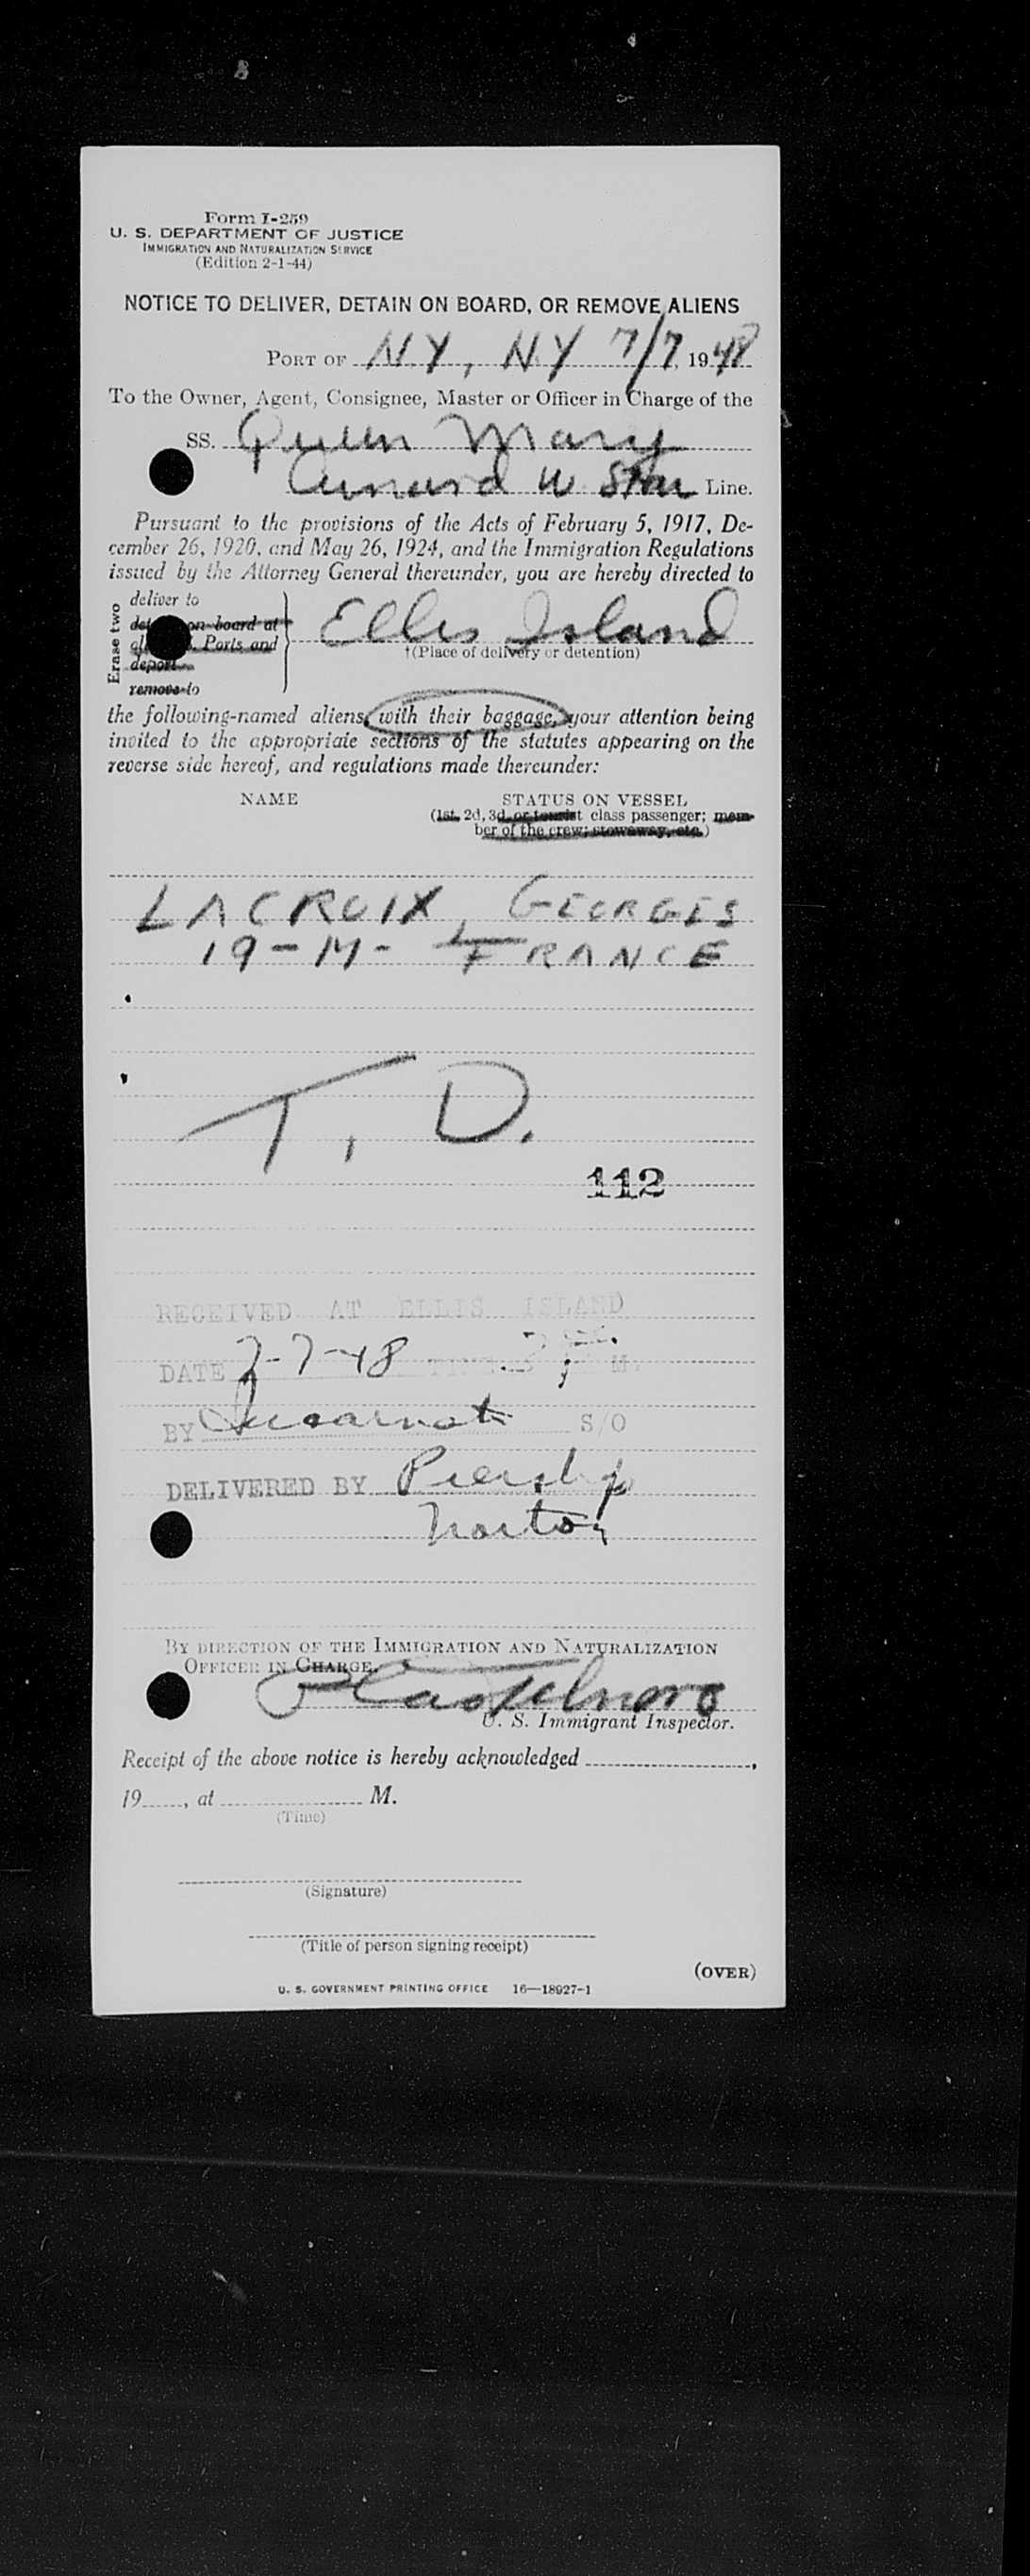 Form I-259
U. S. DEPARTMENT OF JUSTICE
IMMIGRATION AND NATURALIZATION SERVICE
(Edition 2-1-44)
NOTICE TO DELIVER, DETAIN ON BOARD, OR REMOVE ALIENS
PORT OF N.Y, N.Y 7/7, 1948
To the Owner, Agent, Consignee, Master or Officer in Charge of the
SS. Queen Mary
Cunard W. Star Line.
Pursuant to the provisions of the Acts of February 5, 1917, De-
cember 26, 1920, and May 26, 1924, and the Immigration Regulations
issued by the Attorney General thereunder, you are hereby directed to
Erase two
deliver to
on board at
Ports and
deport
remove to
Ellis Island
†(Place of delivery or detention)
the following-named aliens, with their baggage, your attention being
invited to the appropriate sections of the statutes appearing on the
reverse side hereof, and regulations made thereunder:
NAME STATUS ON VESSEL
(1st, 2d, 3d, or tourist class passenger; mem-
ber of the crew; stowaway, etc.)
LACROIX, GEORGES
19-M- FRANCE
T, D.
112
RECEIVED AT ELLIS ISLAND
DATE 7-7-48 M.
BY S/O
DELIVERED BY
Norton
BY DIRECTION OF THE IMMIGRATION AND NATURALIZATION
OFFICER IN CHARGE.
U. S. Immigrant Inspector.
Receipt of the above notice is hereby acknowledged ,
19 , at M.
(Time)
(Signature)
(Title of person signing receipt)
(OVER)
U. S. GOVERNMENT PRINTING OFFICE 16—18927-1